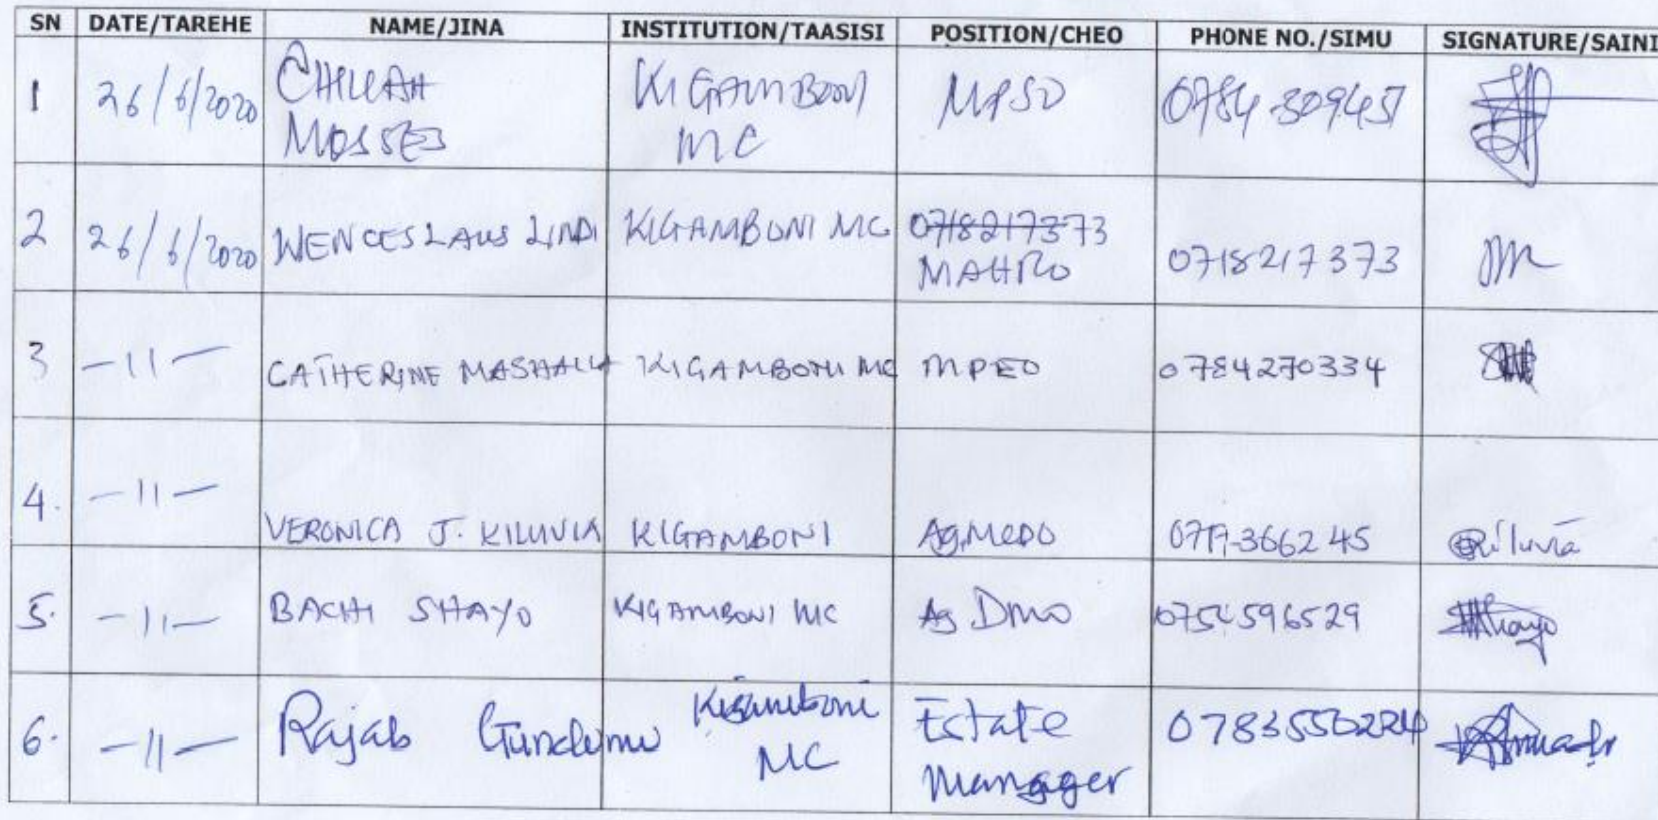 SN DATE/TAREHE NAME/JINA INSTITUTION/TAASISI POSITION/CHEO PHONE NO./SIMU SIGNATURE/SAINI
1 26/6/2020 CHILEASH KIGAMBONI MPSO 0784 309457
MOSSES MC
2 26/6/2020 WENCESLAUS LINDI KIGAMBONI MC 0718217373
MAHRO 0718217373
3 -11- CATHERINE MASHALLA KIGAMBONI MC MPEO 0784270334
4. -11-
VERONICA J. KILUVIA KIGAMBONI Ag.MEDO 0717366245 Kiluvia
5. -11- BACHI SHAYO KIGAMBONI MC Ag DMO 0754596529 Shayo
6. -11- Rajab Gundumu Kigamboni Estate
MC Manager